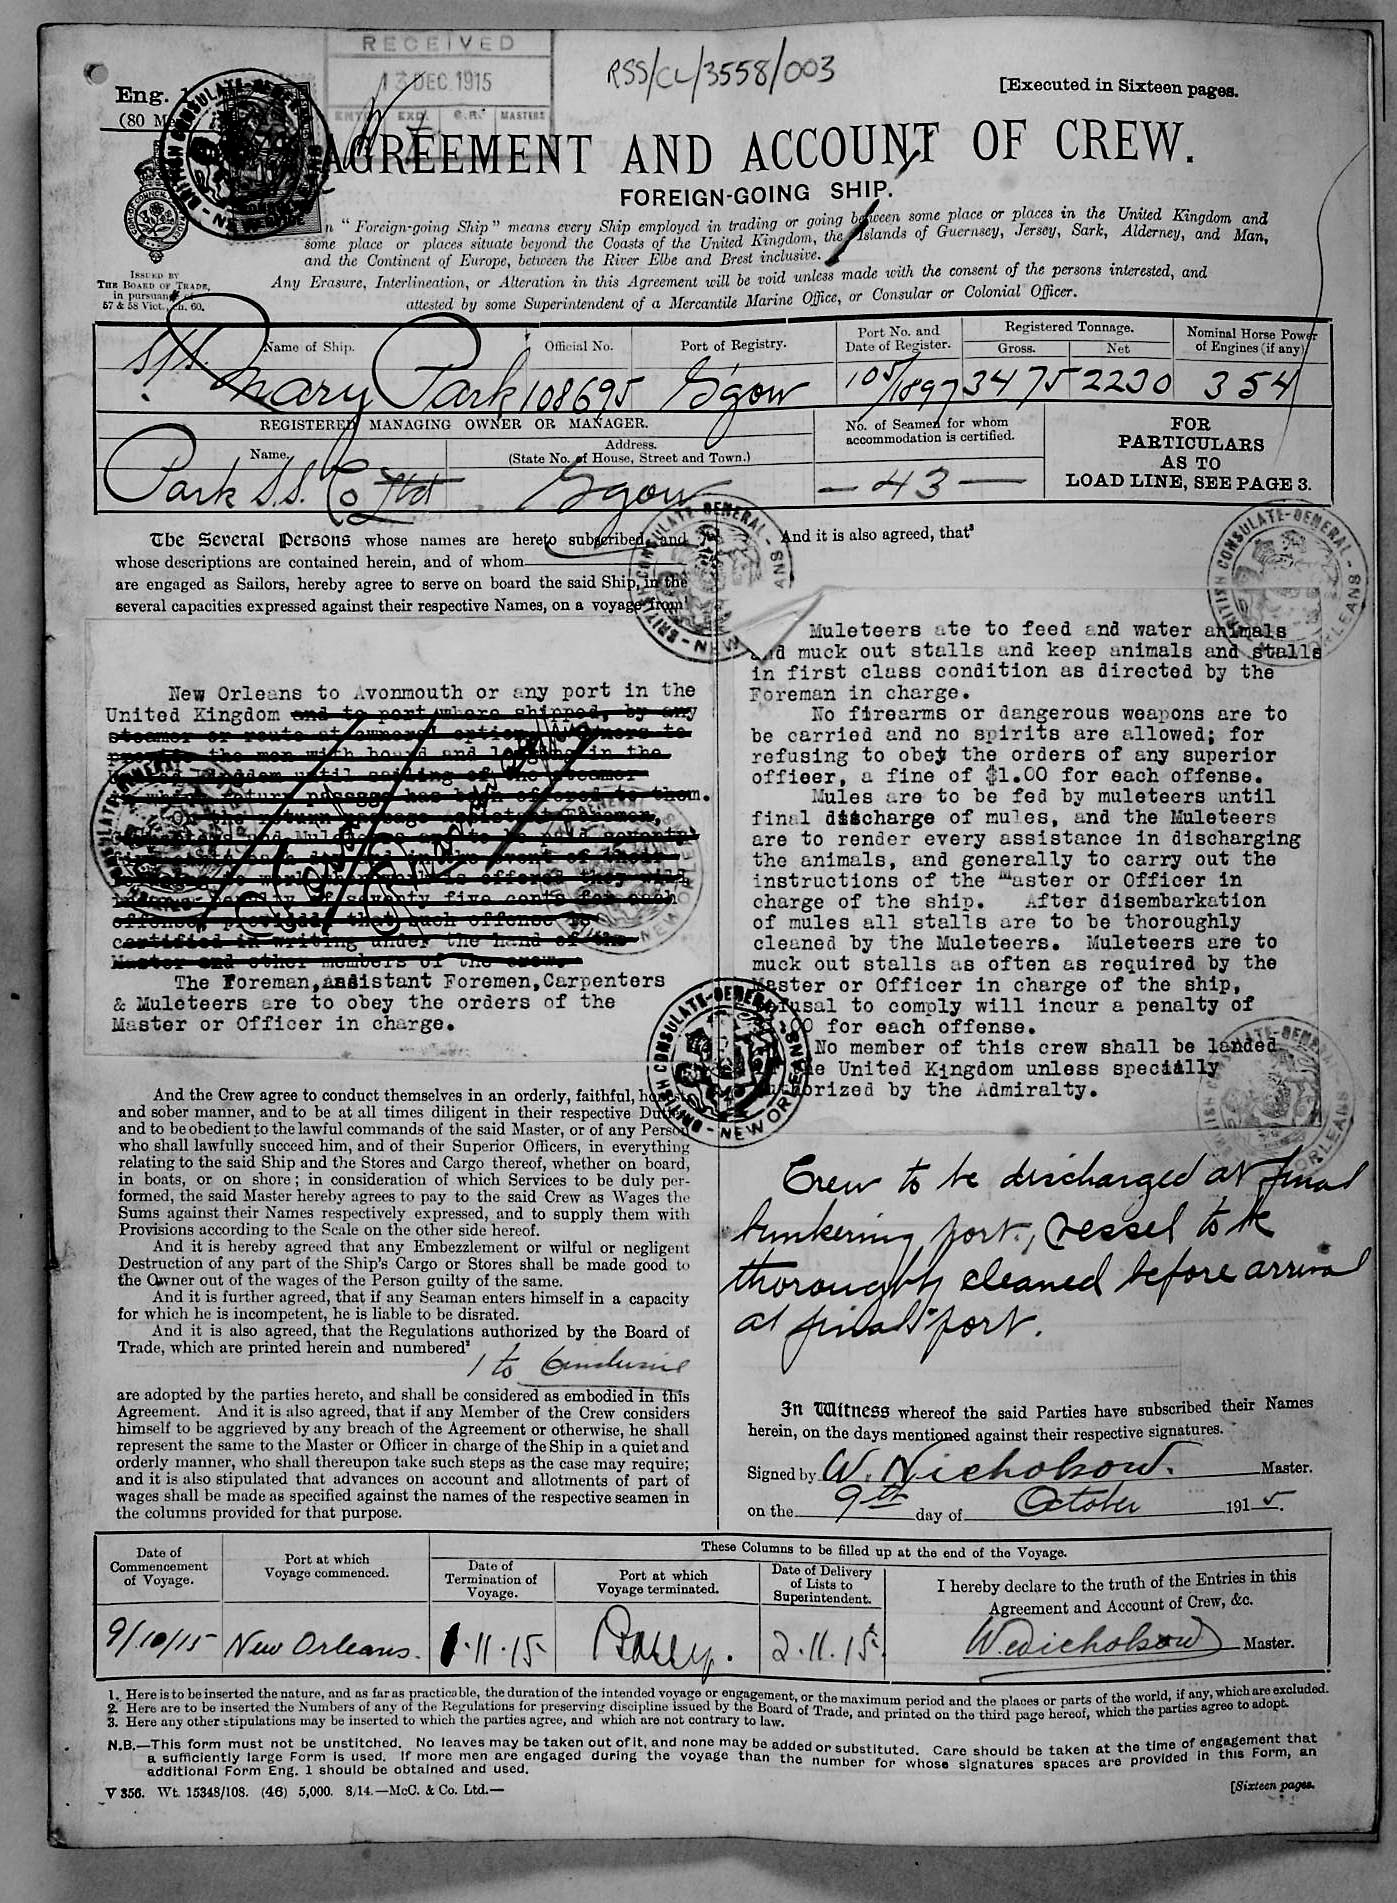 RECEIVED
13 DEC 1915
ENTD EXD. C.R. MASTERS
RSS/CL/3558/003
Eng. 1
[Executed in Sixteen pages.
AGREEMENT AND ACCOUNT OF CREW.
FOREIGN-GOING SHIP.
"Foreign-going Ship" means every Ship employed in trading or going between some place or places in the United Kingdom and
some place or places situate beyond the Coasts of the United Kingdom, the Islands of Guernsey, Jersey, Sark, Alderney, and Man,
and the Continent of Europe, between the River Elbe and Brest inclusive.
Any Erasure, Interlineation, or Alteration in this Agreement will be void unless made with the consent of the persons interested, and
attested by some Superintendent of a Mercantile Marine Office, or Consular or Colonial Officer.
ISSUED BY
THE BOARD OF TRADE,
in pursuance of
57 & 58 Vict., ch. 60.
BRITISH CONSULATE-GENERAL - NEW ORLEANS
Name of Ship. Official No. Port of Registry. Port No. and Date of Register. Registered Tonnage. Gross. Net Nominal Horse Power of Engines (if any)
S/S. Mary Park 108695 G'gow 105/1897 3475 2230 354
REGISTERED MANAGING OWNER OR MANAGER.
Name. Address.
(State No. of House, Street and Town.)
No. of Seamen for whom
accommodation is certified.
FOR
PARTICULARS
AS TO
LOAD LINE, SEE PAGE 3.
Park S.S. Co Ltd G'gow — 43 —
The Several Persons whose names are hereto subscribed, and
whose descriptions are contained herein, and of whom
are engaged as Sailors, hereby agree to serve on board the said Ship, in the
several capacities expressed against their respective Names, on a voyage from¹
New Orleans to Avonmouth or any port in the
United Kingdom and to port where shipped, by any
steamer or route at owners' option, Owners to
provide the men with board and lodging in the
United Kingdom until sailing of the steamer
in which return passage has been offered to them.
On the return passage Assistant Foremen,
event of their
offered they will
penalty of seventy five cents for each
offense, provided that such offense is
certified in writing under the hand of the
Master and other members of the crew.
The Foreman, Assistant Foremen, Carpenters
& Muleteers are to obey the orders of the
Master or Officer in charge.
And the Crew agree to conduct themselves in an orderly, faithful, honest
and sober manner, and to be at all times diligent in their respective Duties,
and to be obedient to the lawful commands of the said Master, or of any Person
who shall lawfully succeed him, and of their Superior Officers, in everything
relating to the said Ship and the Stores and Cargo thereof, whether on board,
in boats, or on shore; in consideration of which Services to be duly per-
formed, the said Master hereby agrees to pay to the said Crew as Wages the
Sums against their Names respectively expressed, and to supply them with
Provisions according to the Scale on the other side hereof.
And it is hereby agreed that any Embezzlement or wilful or negligent
Destruction of any part of the Ship's Cargo or Stores shall be made good to
the Owner out of the wages of the Person guilty of the same.
And it is further agreed, that if any Seaman enters himself in a capacity
for which he is incompetent, he is liable to be disrated.
And it is also agreed, that the Regulations authorized by the Board of
Trade, which are printed herein and numbered²
1 to 6 inclusive
are adopted by the parties hereto, and shall be considered as embodied in this
Agreement. And it is also agreed, that if any Member of the Crew considers
himself to be aggrieved by any breach of the Agreement or otherwise, he shall
represent the same to the Master or Officer in charge of the Ship in a quiet and
orderly manner, who shall thereupon take such steps as the case may require;
and it is also stipulated that advances on account and allotments of part of
wages shall be made as specified against the names of the respective seamen in
the columns provided for that purpose.
And it is also agreed, that³
Muleteers ate to feed and water animals
and muck out stalls and keep animals and stalls
in first class condition as directed by the
Foreman in charge.
No firearms or dangerous weapons are to
be carried and no spirits are allowed; for
refusing to obey the orders of any superior
officer, a fine of $1.00 for each offense.
Mules are to be fed by muleteers until
final discharge of mules, and the Muleteers
are to render every assistance in discharging
the animals, and generally to carry out the
instructions of the Master or Officer in
charge of the ship. After disembarkation
of mules all stalls are to be thoroughly
cleaned by the Muleteers. Muleteers are to
muck out stalls as often as required by the
Master or Officer in charge of the ship,
refusal to comply will incur a penalty of
$1.00 for each offense.
No member of this crew shall be landed
in the United Kingdom unless specially
authorized by the Admiralty.
Crew to be discharged at final
bunkering port, vessel to be
thoroughly cleaned before arrival
at final port.
In Witness whereof the said Parties have subscribed their Names
herein, on the days mentioned against their respective signatures.
Signed by W. Nicholson. Master.
on the 9th day of October 1915.
Date of Commencement of Voyage. Port at which Voyage commenced. These Columns to be filled up at the end of the Voyage.
Date of Termination of Voyage. Port at which Voyage terminated. Date of Delivery of Lists to Superintendent. I hereby declare to the truth of the Entries in this
Agreement and Account of Crew, &c.
9/10/15 New Orleans. 1.11.15 Barry. 2.11.15 W. Nicholson Master.
1. Here is to be inserted the nature, and as far as practicable, the duration of the intended voyage or engagement, or the maximum period and the places or parts of the world, if any, which are excluded.
2. Here are to be inserted the Numbers of any of the Regulations for preserving discipline issued by the Board of Trade, and printed on the third page hereof, which the parties agree to adopt.
3. Here any other stipulations may be inserted to which the parties agree, and which are not contrary to law.
N.B.—This form must not be unstitched. No leaves may be taken out of it, and none may be added or substituted. Care should be taken at the time of engagement that
a sufficiently large Form is used. If more men are engaged during the voyage than the number for whose signatures spaces are provided in this Form, an
additional Form Eng. 1 should be obtained and used.
V 356. Wt. 15348/108. (46) 5,000. 8/14.—McC. & Co. Ltd.—
[Sixteen pages.